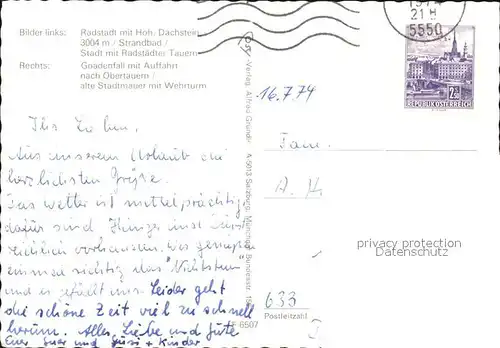 Bilder links: Radstadt mit Hoh. Dachstein
3004 m / Strandbad /
Stadt mit Radstädter Tauern
Rechts: Gnadenfall mit Auffahrt
nach Obertauern /
alte Stadtmauer mit Wehrturm
21 H
5550
2.50
REPUBLIK ÖSTERREICH
16.7.74
Ihr Lieben,
Aus unserem Urlaub die
herzlichsten Grüße.
Das Wetter ist mittelprächtig
dafür sind Hunger und
reichlich vorhanden. Wir genießen
einmal richtig das "Nichtstun"
und es gefällt uns. Leider geht
die schöne Zeit viel zu schnell
herum. Alles Liebe und Gute
Eure und Susi + Kinder
-Verlag, Alfred Gründler, A-5013 Salzburg, Münchner Bundesstr.
6507
Fam.
633
Postleitzahl
privacy protection
Datenschutz